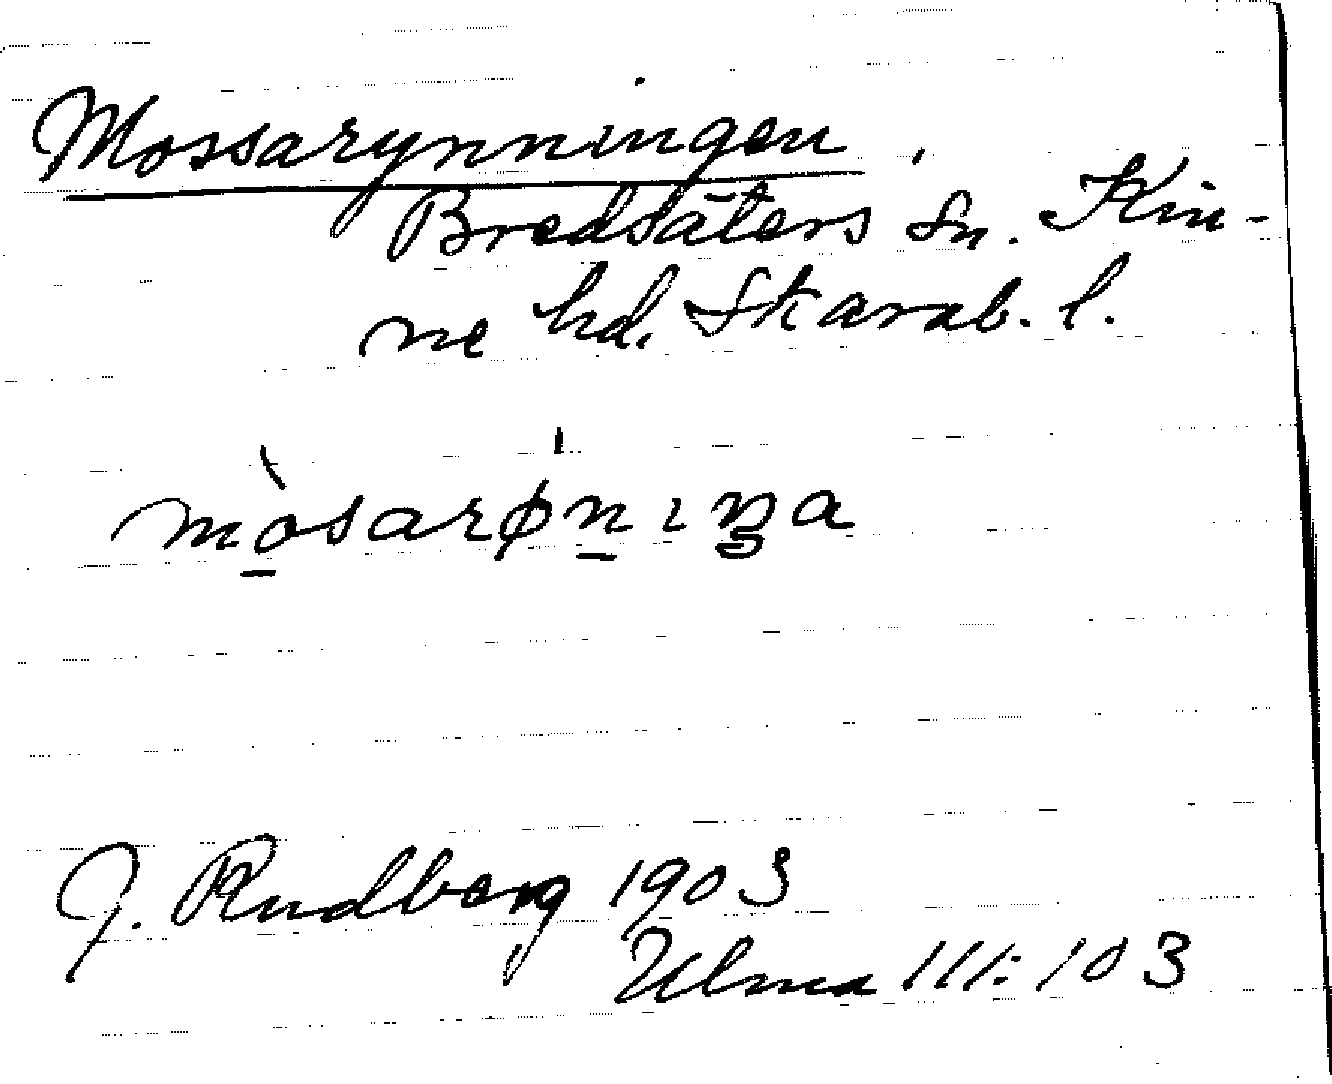 Mossarynningen,
Bredsäters Sn. Kin-
ne hd. Skarab. l.
mòsarøniŋa
J. Rudberg 1903
Ulma 111:103